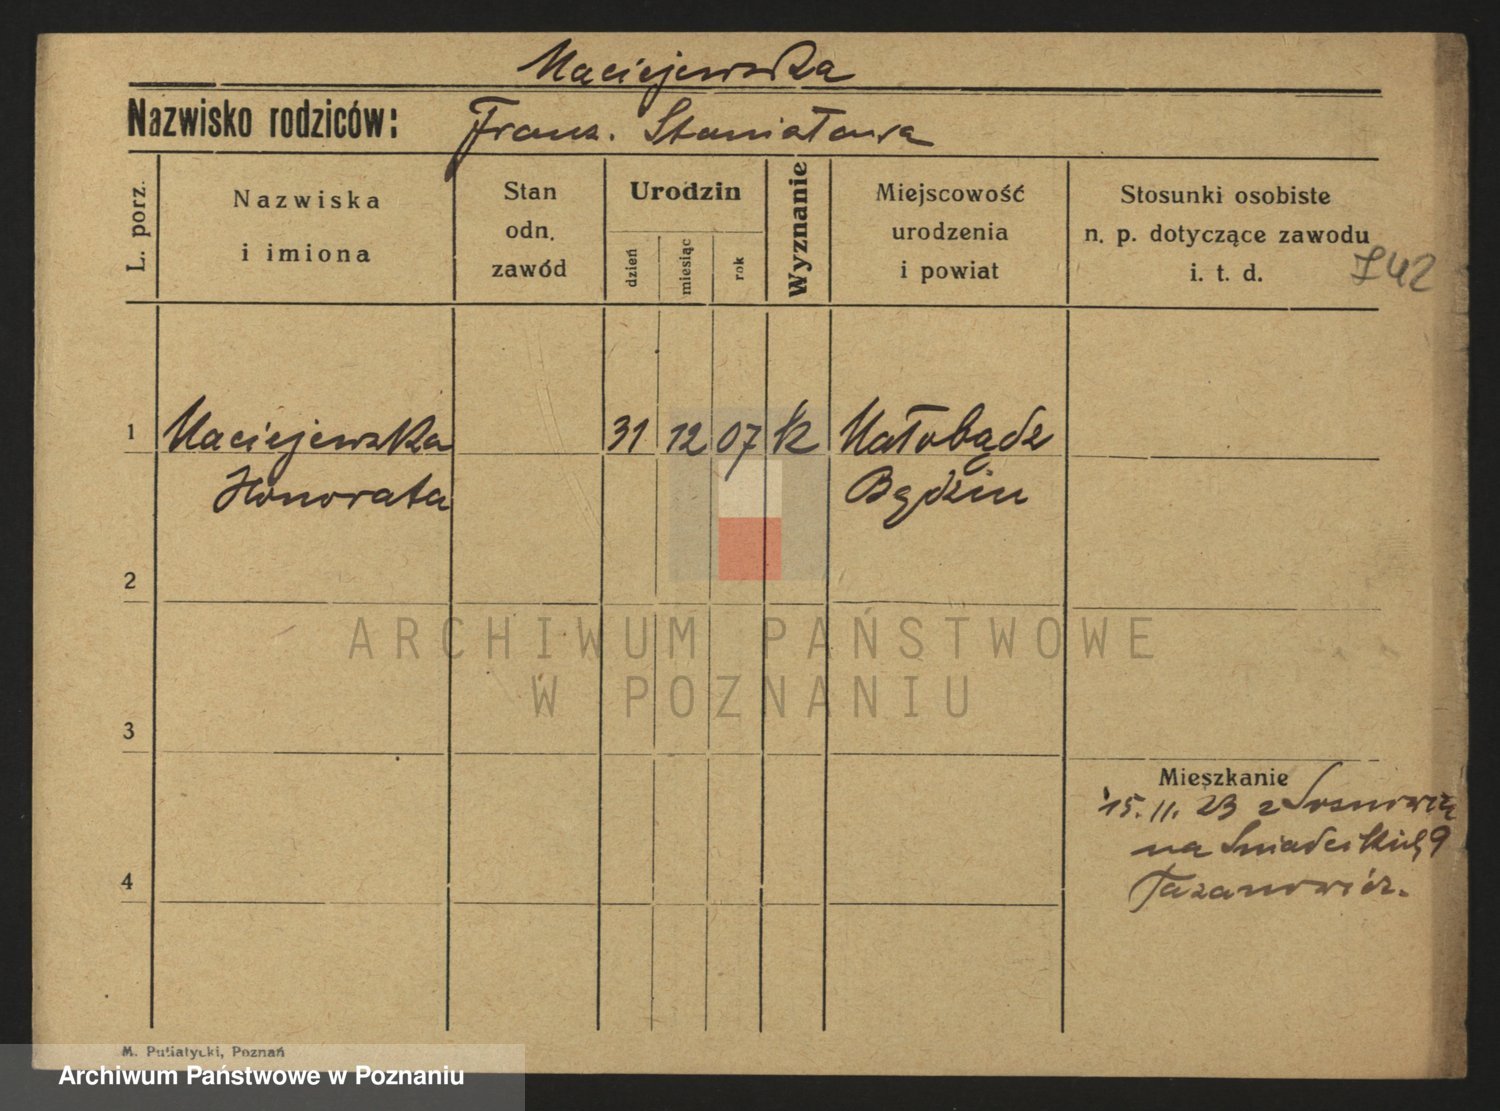 Maciejewska
Nazwisko rodziców: Franc. Stanisława
L. porz.
Nazwiska
i imiona
Stan
odn.
zawód
Urodzin
dzień
miesiąc
rok
Wyznanie
Miejscowość
urodzenia
i powiat
Stosunki osobiste
n. p. dotyczące zawodu
i. t. d.
742
1 Maciejewska 31 12 07 k Małobądz
Honorata Będzin
2
3
4
Mieszkanie
15.11.23 z Sosnowic
na Śniadeckich 9
M. Putiatycki, Poznań
ARCHIWUM PAŃSTWOWE
W POZNANIU
Archiwum Państwowe w Poznaniu